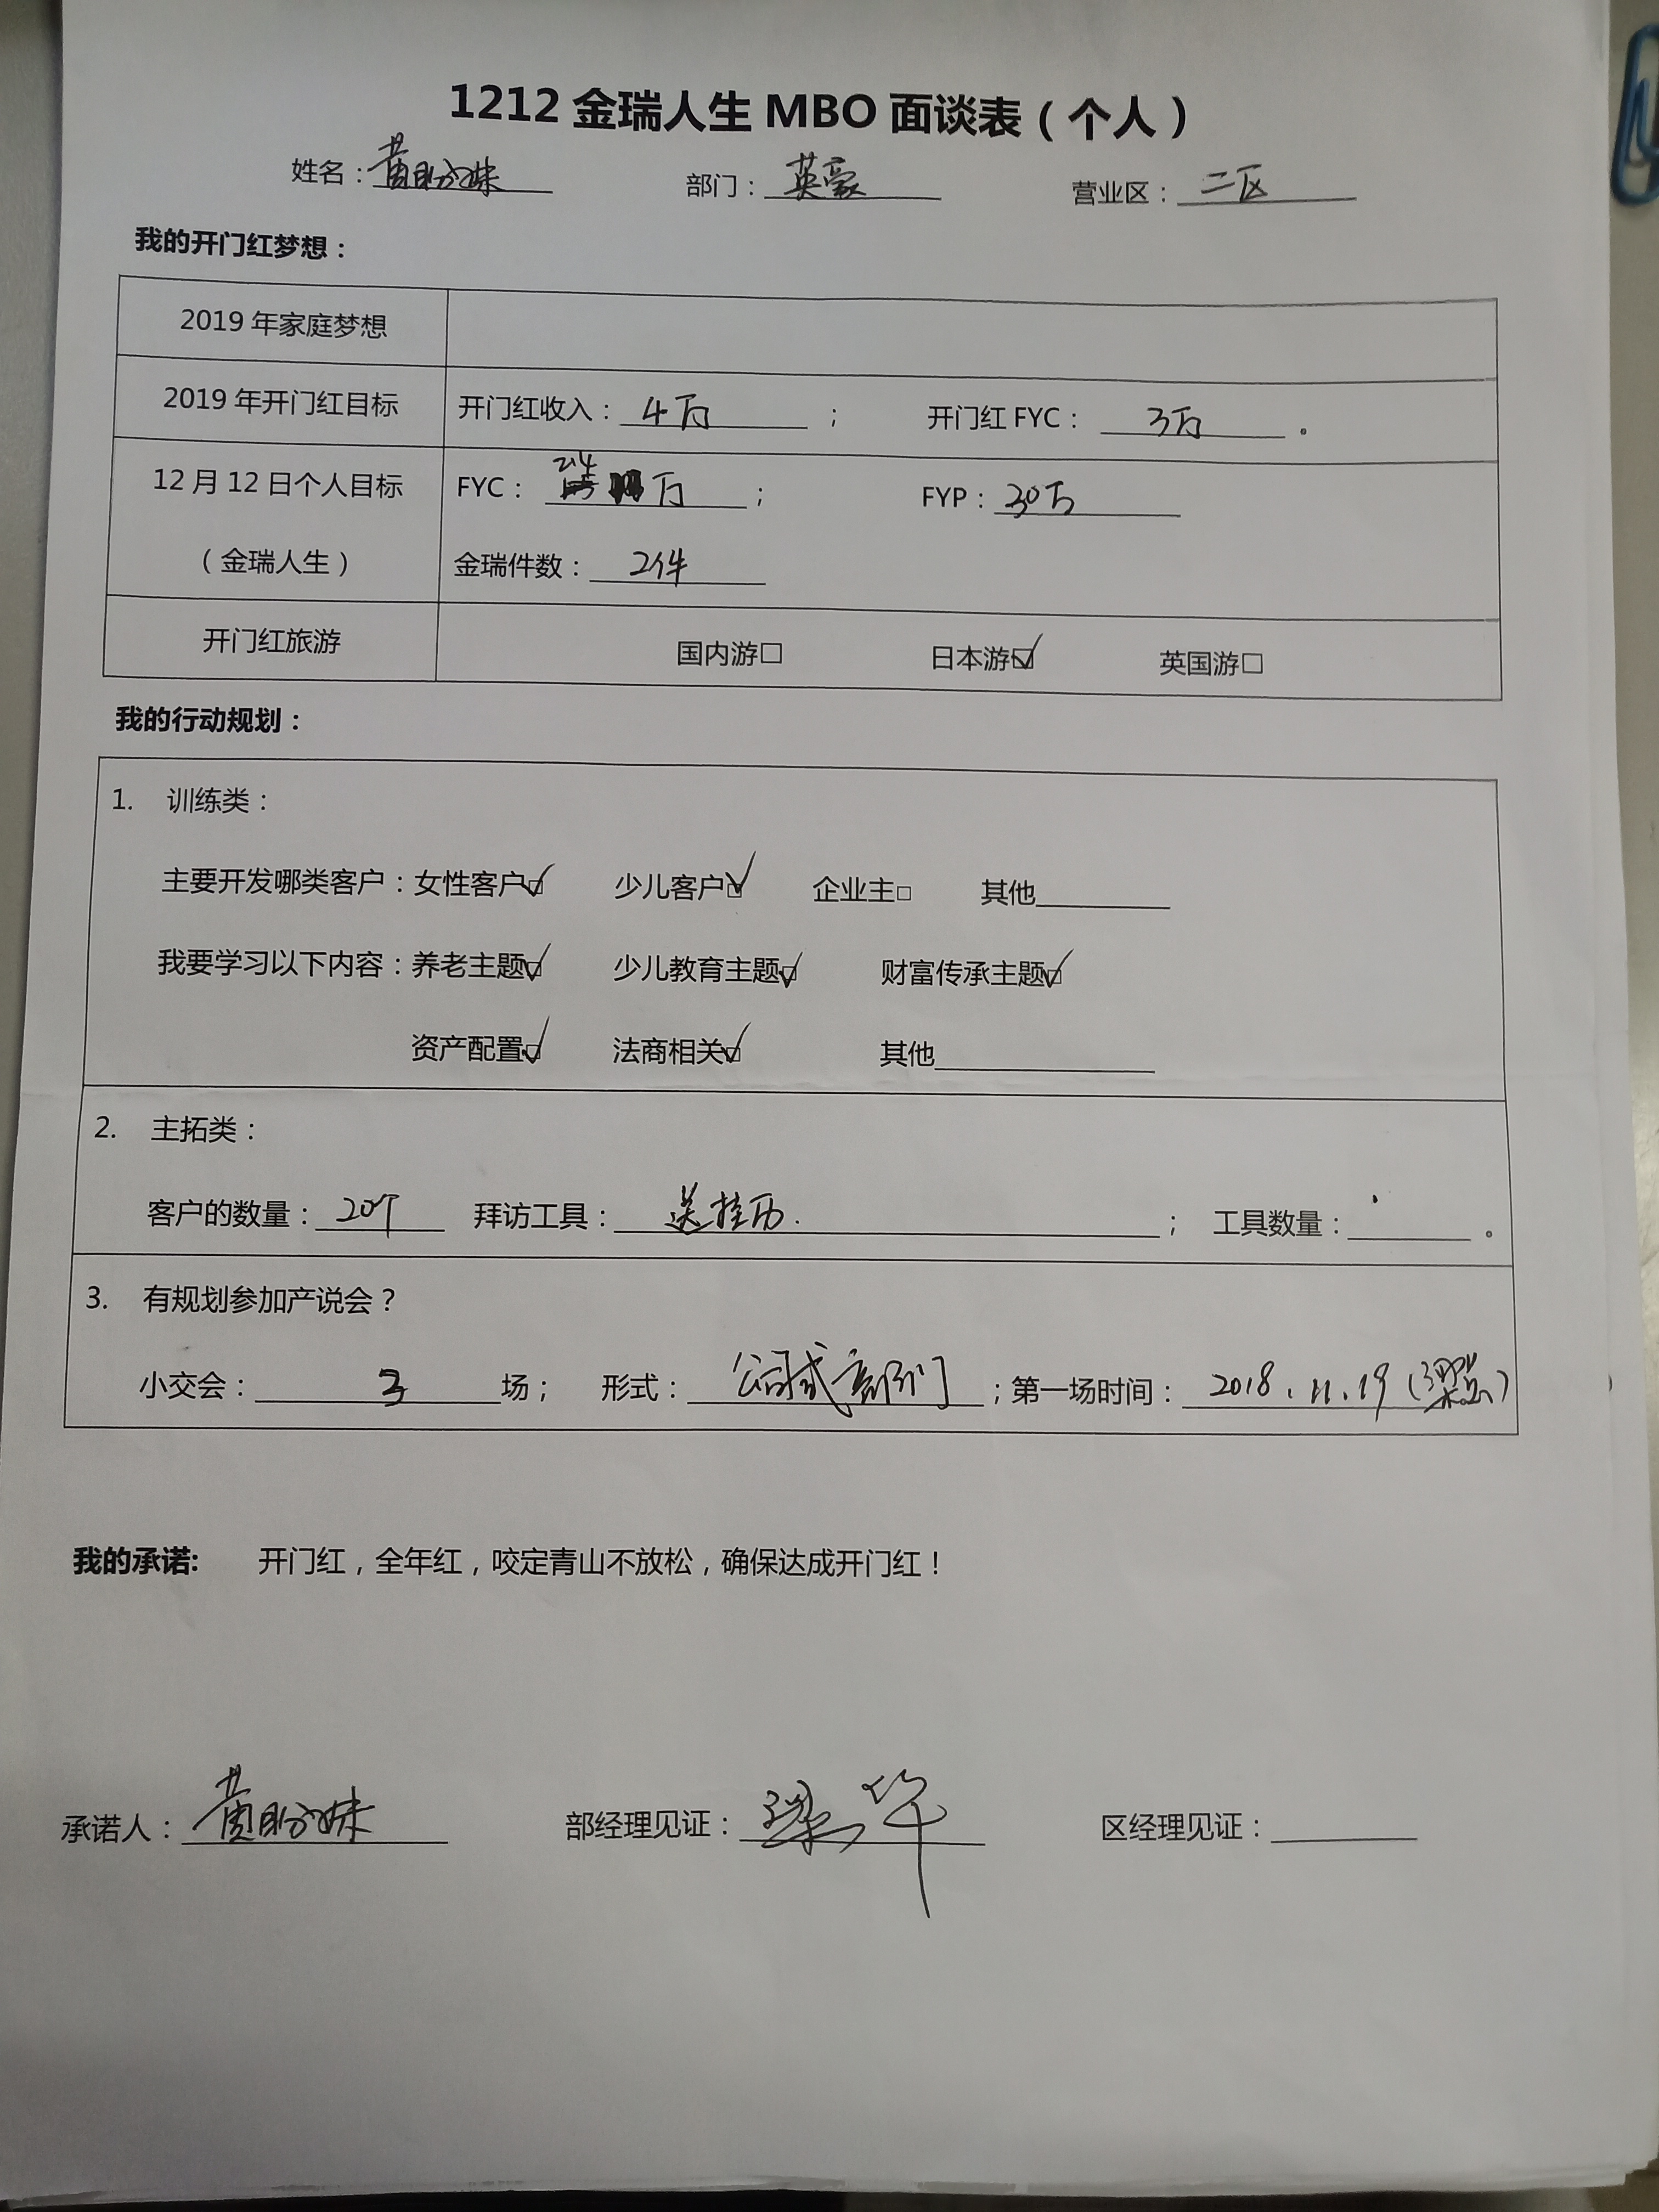 1212 金瑞人生 MBO 面谈表（个人）
姓名：黄盼妹 部门：英豪 营业区：二区
我的开门红梦想：
2019 年家庭梦想
2019 年开门红目标 开门红收入：4万 ； 开门红 FYC：3万 。
12 月 12 日个人目标 FYC：万 ； FYP：30万
（金瑞人生） 金瑞件数：2件
开门红旅游 国内游□ 日本游☑ 英国游□
我的行动规划：
1. 训练类：
主要开发哪类客户：女性客户☑ 少儿客户☑ 企业主□ 其他
我要学习以下内容：养老主题☑ 少儿教育主题☑ 财富传承主题☑
资产配置☑ 法商相关☑ 其他
2. 主拓类：
客户的数量：20个 拜访工具：送挂历. ； 工具数量： 。
3. 有规划参加产说会？
小交会：3场； 形式：公司或部门；第一场时间：2018.11.19（梁总）
我的承诺: 开门红，全年红，咬定青山不放松，确保达成开门红！
承诺人：黄盼妹 部经理见证：梁华 区经理见证：